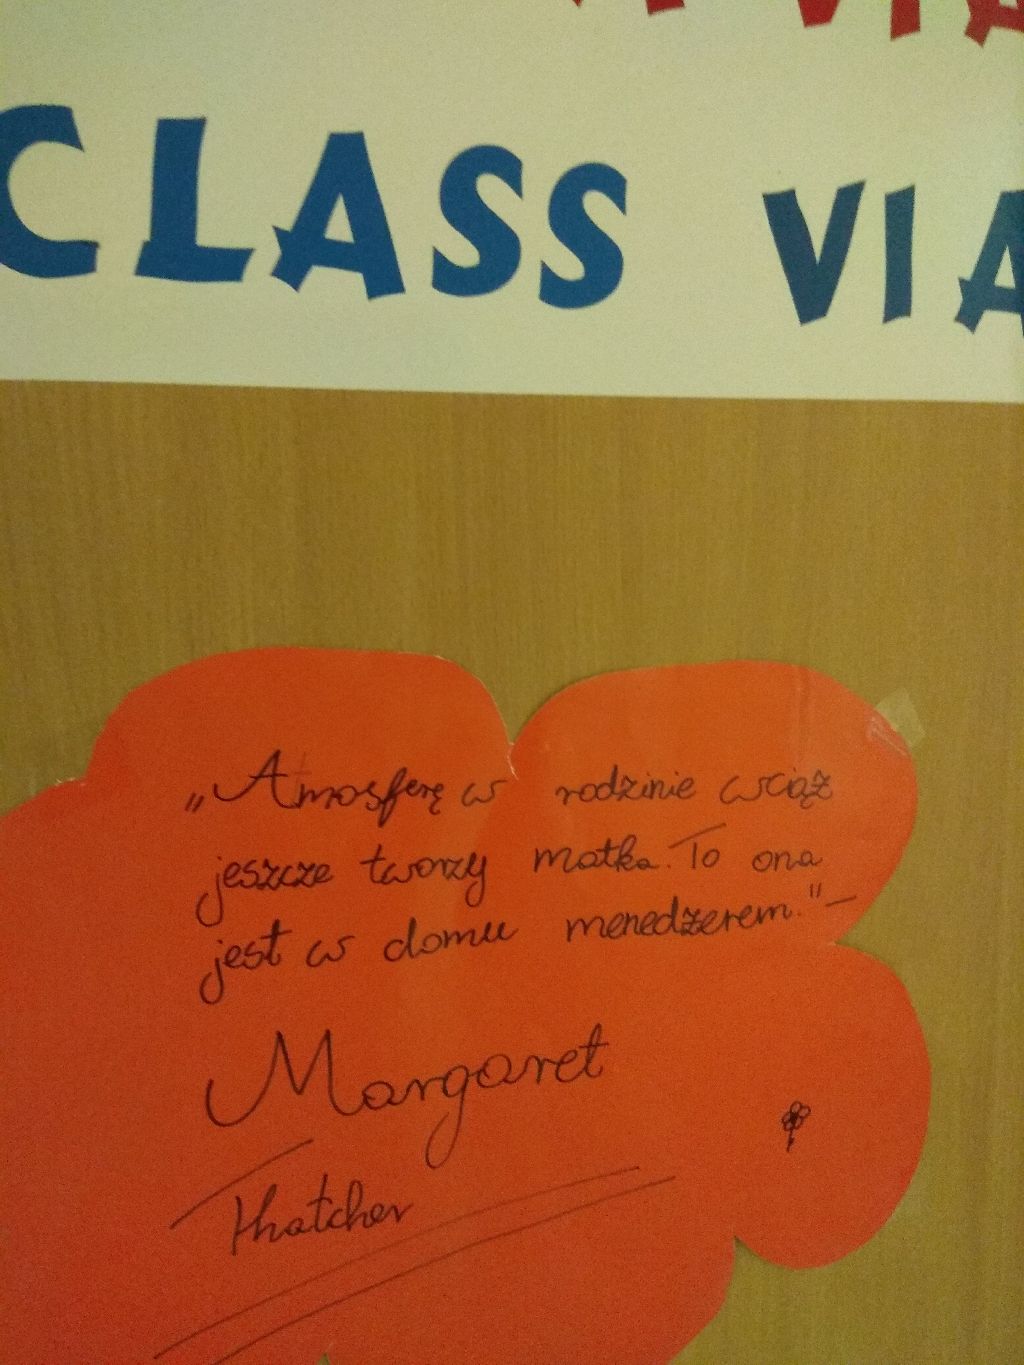 VIA
CLASS VIA
„Atmosferę w rodzinie wciąż
jeszcze tworzy matka. To ona
jest w domu menedżerem." —
Margaret
Thatcher